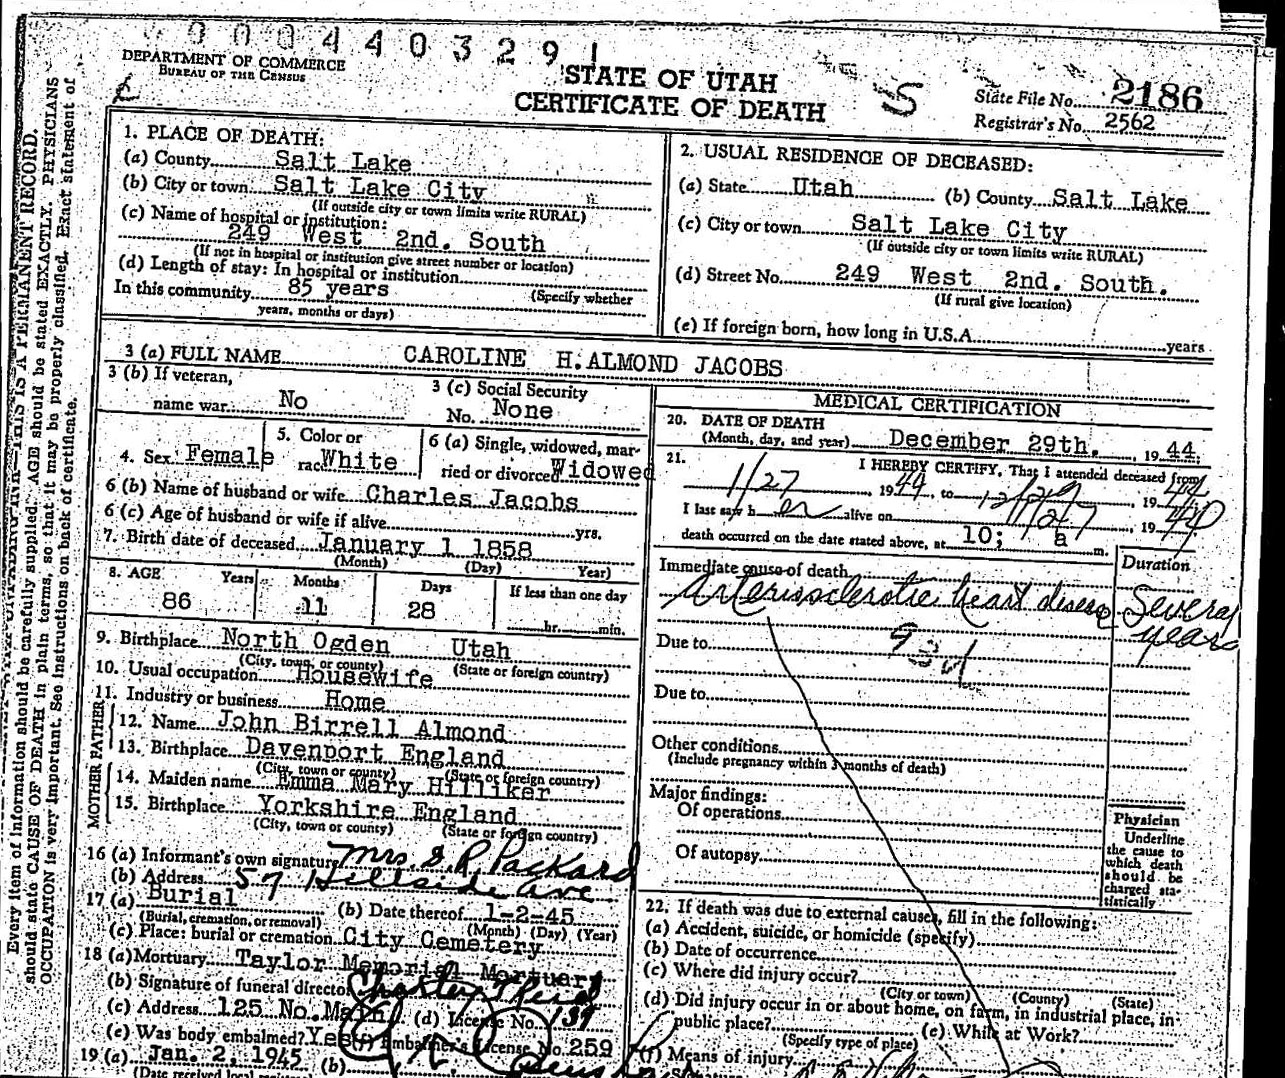 0004403291
DEPARTMENT OF COMMERCE
BUREAU OF THE CENSUS
STATE OF UTAH
CERTIFICATE OF DEATH
S
State File No. 2186
Registrar's No. 2562
Every item of information should be carefully supplied. AGE should be stated EXACTLY. PHYSICIANS
should state CAUSE OF DEATH in plain terms, so that it may be properly classified. Exact statement of
OCCUPATION is very important. See instructions on back of certificate.
THIS IS A PERMANENT RECORD.
1. PLACE OF DEATH:
(a) County Salt Lake
(b) City or town Salt Lake City
(If outside city or town limits write RURAL)
(c) Name of hospital or institution:
249 West 2nd. South
(If not in hospital or institution give street number or location)
(d) Length of stay: In hospital or institution
In this community 85 years (Specify whether
years, months or days)
2. USUAL RESIDENCE OF DECEASED:
(a) State Utah (b) County Salt Lake
(c) City or town Salt Lake City
(If outside city or town limits write RURAL)
(d) Street No. 249 West 2nd. South.
(If rural give location)
(e) If foreign born, how long in U.S.A. years
3 (a) FULL NAME CAROLINE H.ALMOND JACOBS
3 (b) If veteran,
name war. No
3 (c) Social Security
No. None
4. Sex Female
5. Color or
race White
6 (a) Single, widowed, mar-
ried or divorced Widowed
6 (b) Name of husband or wife Charles Jacobs
6 (c) Age of husband or wife if alive yrs.
7. Birth date of deceased January 1 1858
(Month) (Day) Year)
8. AGE Years Months Days If less than one day
86 11 28 hr. min.
9. Birthplace North Ogden Utah
(City, town, or county) (State or foreign country)
10. Usual occupation Housewife
11. Industry or business Home
FATHER
12. Name John Birrell Almond
13. Birthplace Davenport England
(City, town or county) (State or foreign country)
MOTHER
14. Maiden name Emma Mary Hilliker
15. Birthplace Yorkshire England
(City, town or county) (State or foreign country)
16 (a) Informant's own signature Mrs. S. R. Packard
(b) Address 57 Hillside Ave
17 (a) Burial (b) Date thereof 1-2-45
(Burial, cremation, or removal) (Month) (Day) (Year)
(c) Place: burial or cremation City Cemetery
18 (a) Mortuary Taylor Memorial Mortuary
(b) Signature of funeral director
(c) Address 125 No. Main (d) License No. 139
(e) Was body embalmed? Yes Embalmer's License No. 259
19 (a) Jan. 2, 1945 (b)
(Date received local
MEDICAL CERTIFICATION
20. DATE OF DEATH
(Month, day, and year) December 29th, 19 44;
21. I HEREBY CERTIFY, That I attended deceased from
1/27, 19 44, to 12/29, 19 44
I last saw her alive on 12/27, 19 44
death occurred on the date stated above, at 10; a m.
Immediate cause of death Duration
Arteriosclerotic heart disease Several
years
Due to
Due to
Other conditions
(Include pregnancy within 3 months of death)
Major findings:
Of operations
Of autopsy
Physician
Underline
the cause to
which death
should be
charged sta-
tistically
22. If death was due to external causes, fill in the following:
(a) Accident, suicide, or homicide (specify)
(b) Date of occurrence
(c) Where did injury occur?
(City or town) (County) (State)
(d) Did injury occur in or about home, on farm, in industrial place, in
public place? (e) While at Work?
(Specify type of place)
(f) Means of injury